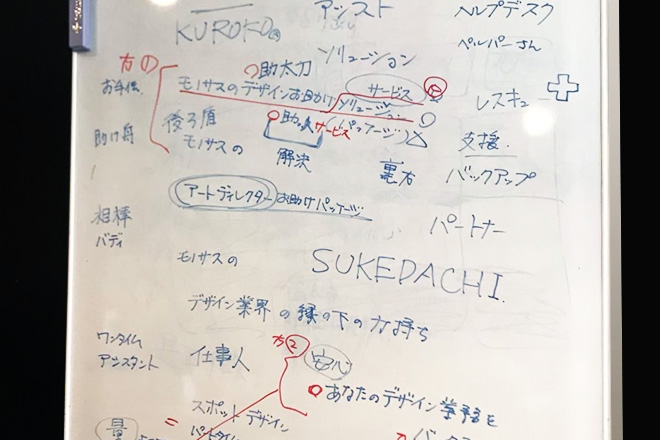 アシスト
ヘルプデスク
KUROKO
ソリューション
ヘルパーさん
方の
助太刀
サービス
お手伝
モノサスのデザインお助けソリューション
レスキュー
後ろ盾
助っ人サービス
(パッケージ)
助け舟
モノサスの
解決
支援
黒右
バックアップ
アートディレクターお助けパッケージ
パートナー
相棒
バディ
モノサスの
SUKEDACHI.
デザイン業界の縁の下の力持ち
ワンタイム
アシスタント
仕事人
方2
安心
あなたのデザイン業務を
スポットデザイン
パートタイム
量